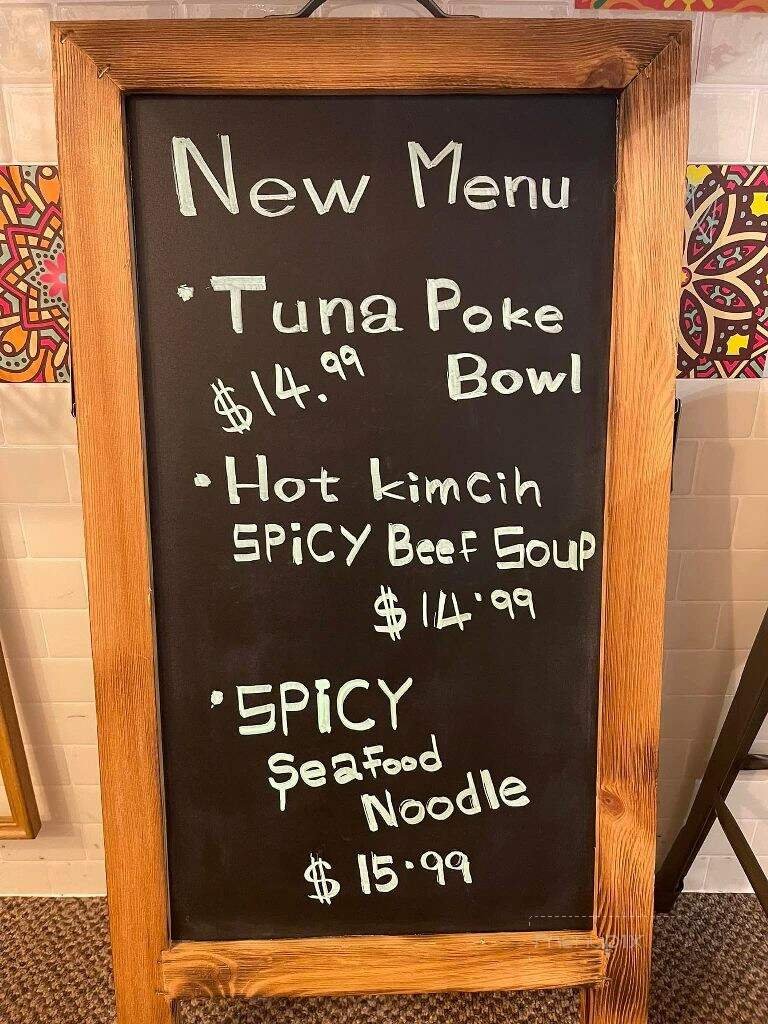 New Menu
• Tuna Poke
$14.99 Bowl
• Hot kimcih
SPiCY Beef Soup
$14.99
• SPiCY
Seafood
Noodle
$15.99